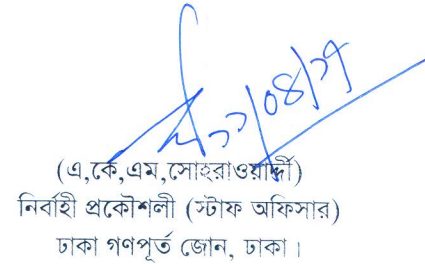 ১১/০৪/১৭
(এ,কে,এম,সোহরাওয়ার্দ্দী)
নির্বাহী প্রকৌশলী (স্টাফ অফিসার)
ঢাকা গণপূর্ত জোন, ঢাকা।